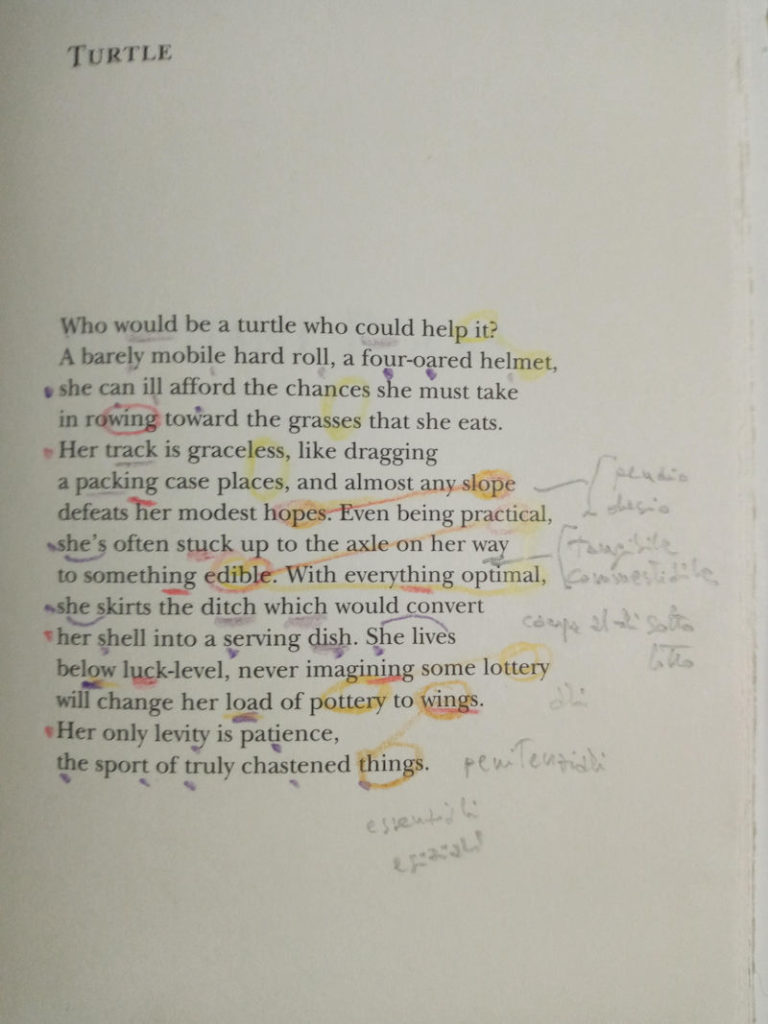 TURTLE
Who would be a turtle who could help it?
A barely mobile hard roll, a four-oared helmet,
she can ill afford the chances she must take
in rowing toward the grasses that she eats.
Her track is graceless, like dragging
a packing case places, and almost any slope
defeats her modest hopes. Even being practical,
she's often stuck up to the axle on her way
to something edible. With everything optimal,
she skirts the ditch which would convert
her shell into a serving dish. She lives
below luck-level, never imagining some lottery
will change her load of pottery to wings.
Her only levity is patience,
the sport of truly chastened things.
pendio
tangibile
commestibile
lotto
ali
penitenziali
essenziali